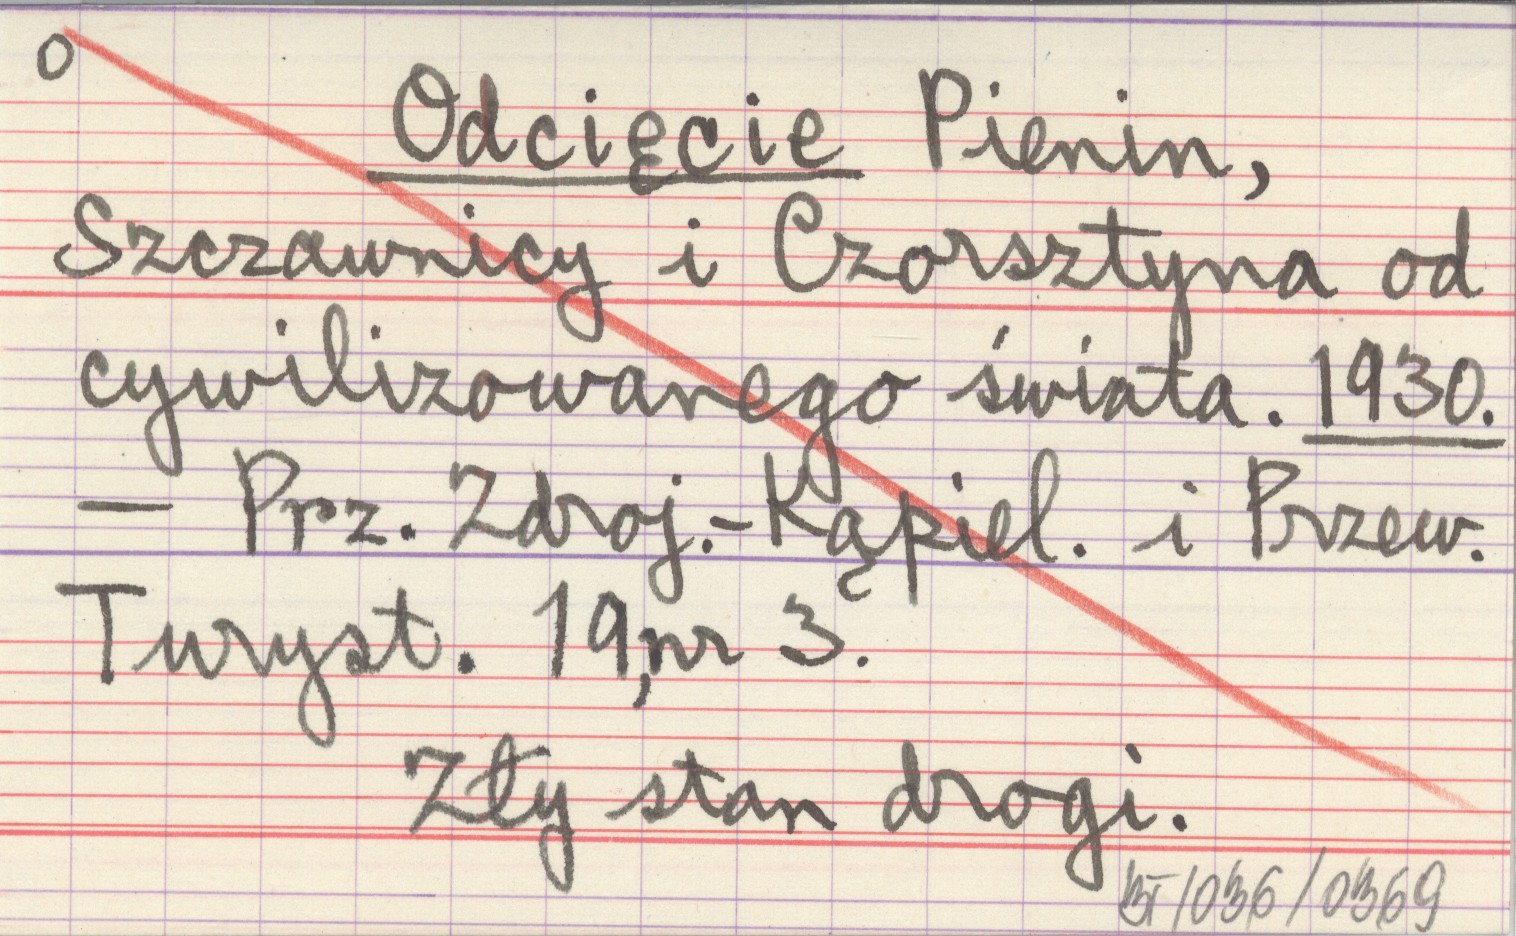 O
Odcięcie Pienin,
Szczawnicy i Czorsztyna od
cywilizowanego świata. 1930.
— Prz. Zdroj.-Kąpiel. i Przew.
Turyst. 19, nr 3.
Zły stan drogi.
/036/0369